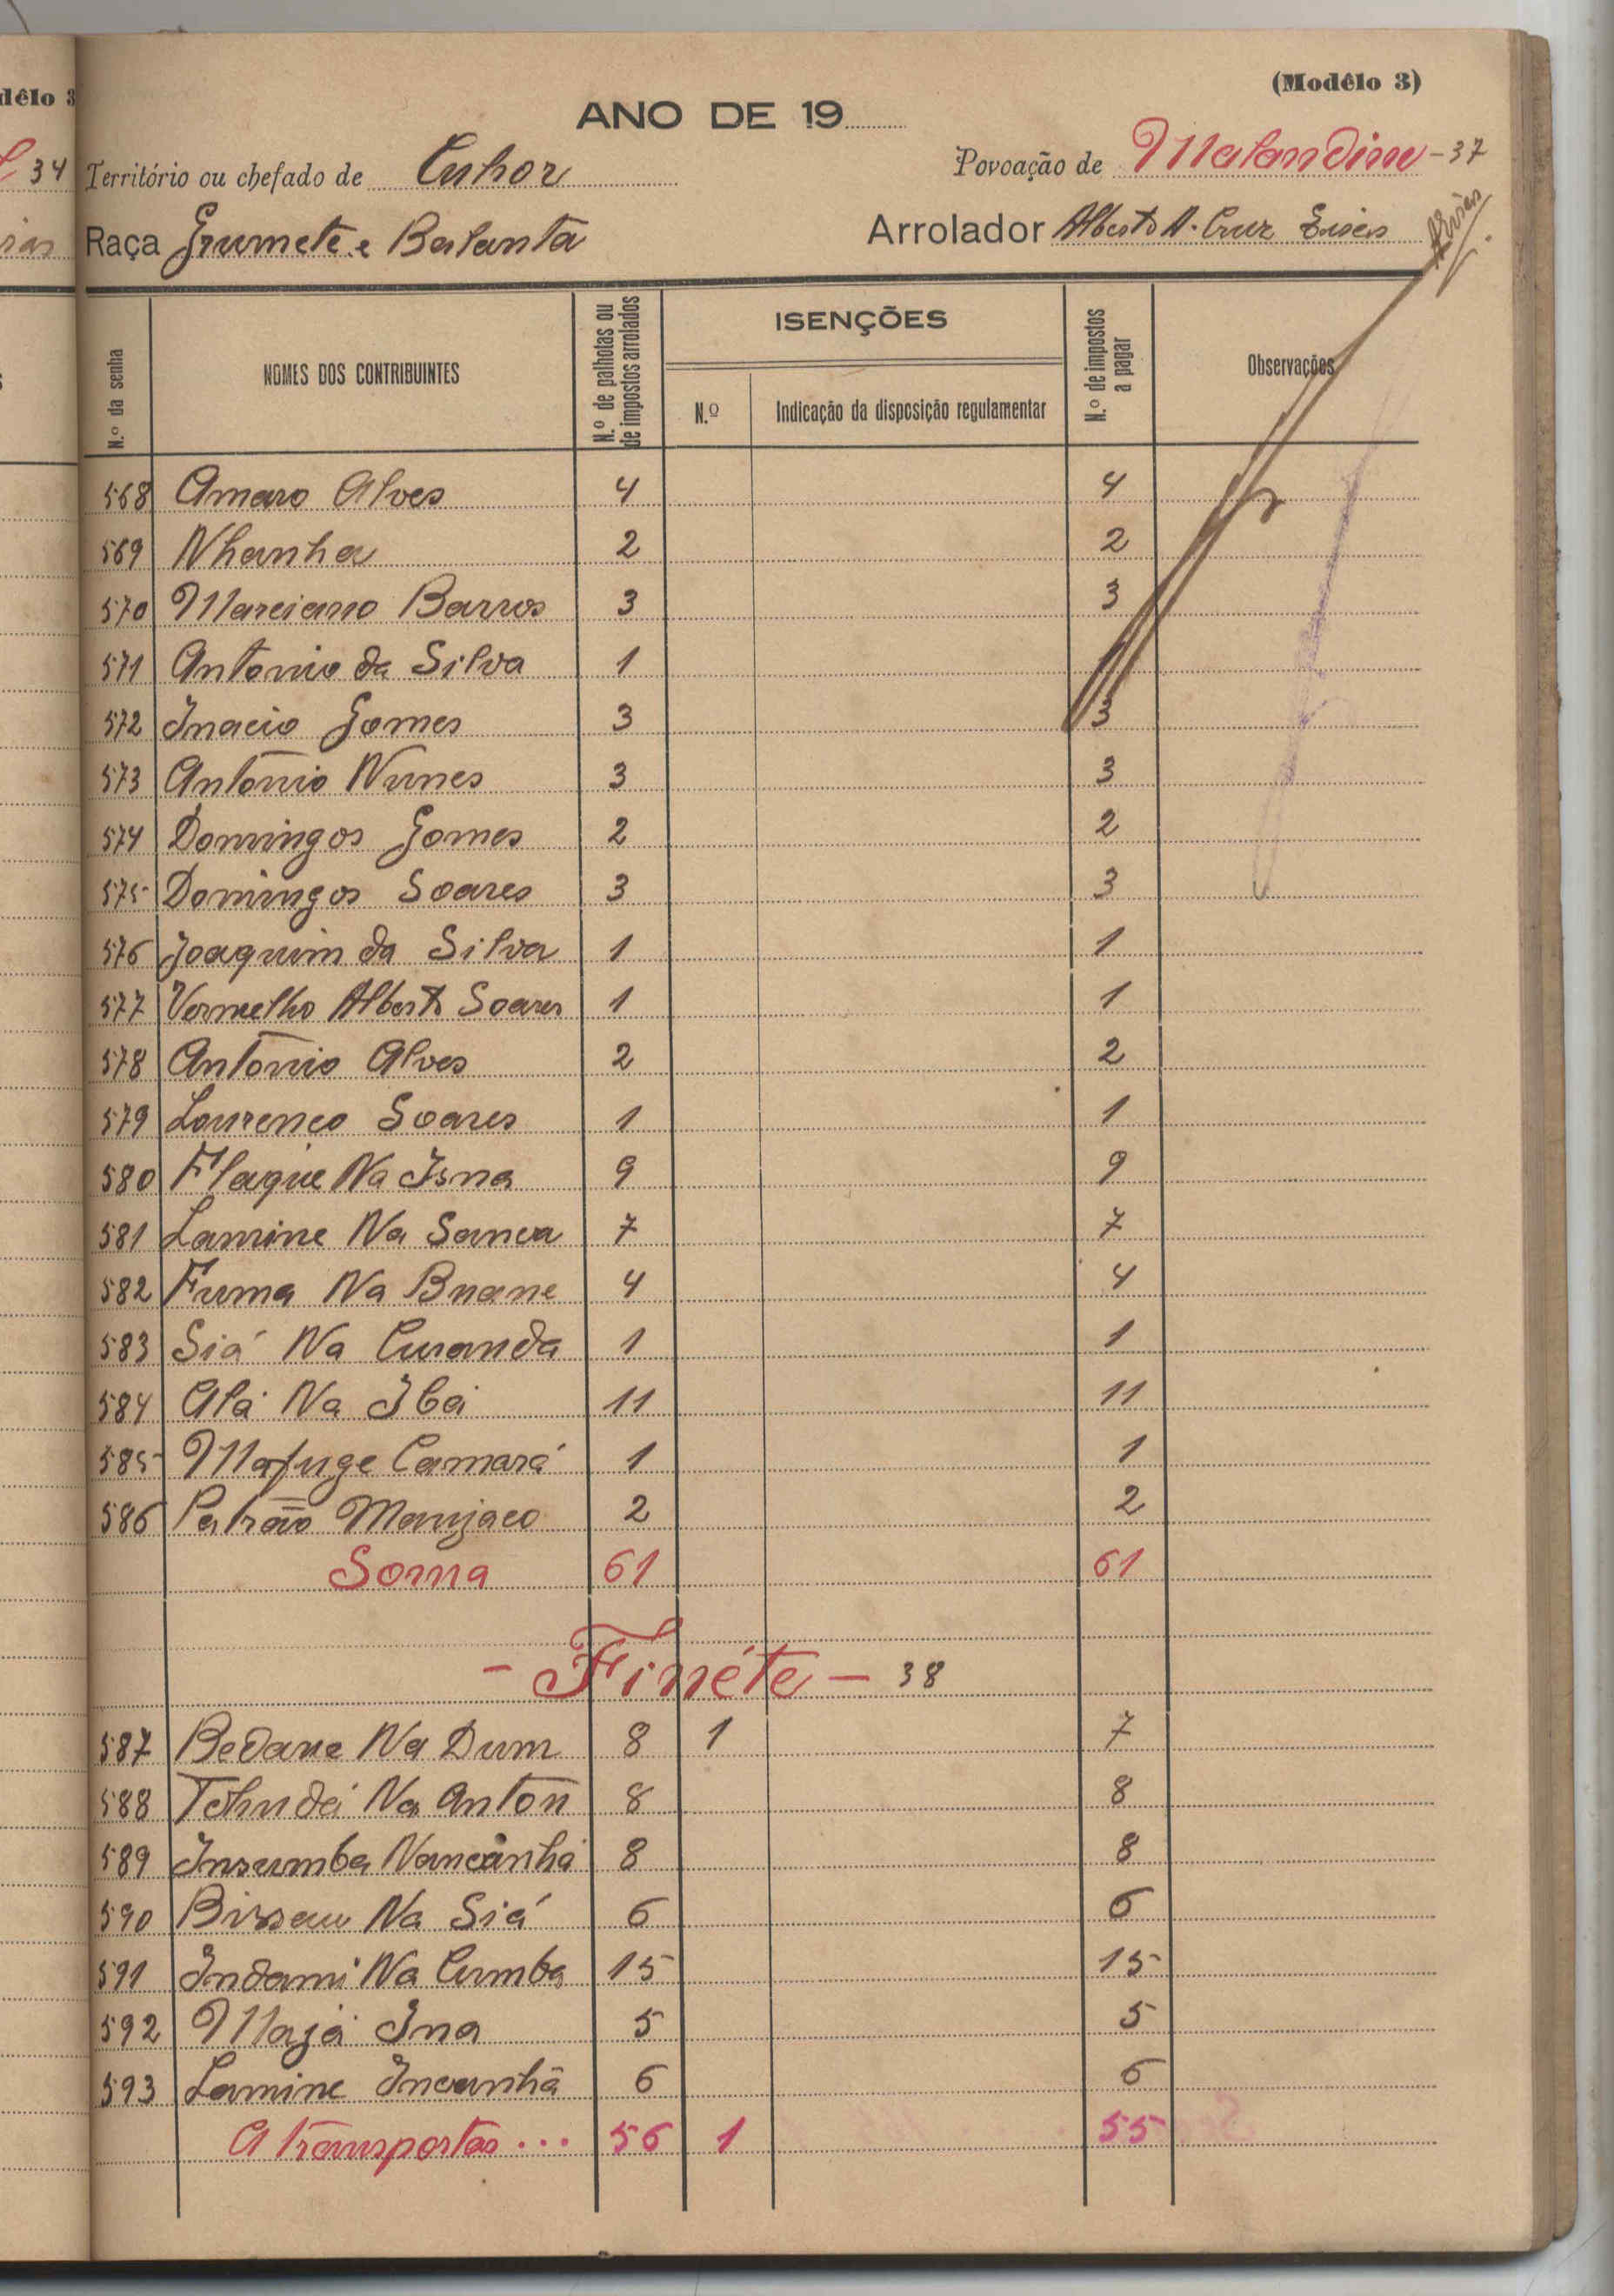 (Modêlo 3)
ANO DE 19
Território ou chefado de Cuhor Povoação de Malandim - 37
Raça Grumete e Balanta Arrolador Alberto A. Cruz
N.º da senha NOMES DOS CONTRIBUINTES N.º de palhotas ou de impostos arrolados ISENÇÕES N.º de impostos a pagar Observações
N.º Indicação da disposição regulamentar
568 Amaro Alves 4 4
569 Nhanha 2 2
570 Marciano Barros 3 3
571 Antonio da Silva 1
572 Inacio Gomes 3 3
573 Antonio Nunes 3 3
574 Domingos Gomes 2 2
575 Domingos Soares 3 3
576 Joaquim da Silva 1 1
577 Vermelho Alberto Soares 1 1
578 Antonio Alves 2 2
579 Lourenco Soares 1 1
580 Flaque Na Isna 9 9
581 Lamine Na Sanca 7 7
582 Fuma Na Buane 4 4
583 Siá Na Curanda 1 1
584 Alá Na Ibá 11 11
585 Mafuge Camará 1 1
586 Patrão Manjaco 2 2
Soma 61 61
- Finéte - 38
587 Bedane Na Dum 8 1 7
588 Tchudá Na Anton 8 8
589 Insumba Nancanha 8 8
590 Bissau Na Siá 6 6
591 Indami Na Cumba 15 15
592 Majá Ina 5 5
593 Lamine Incanhã 6 6
A transportar... 56 1 55